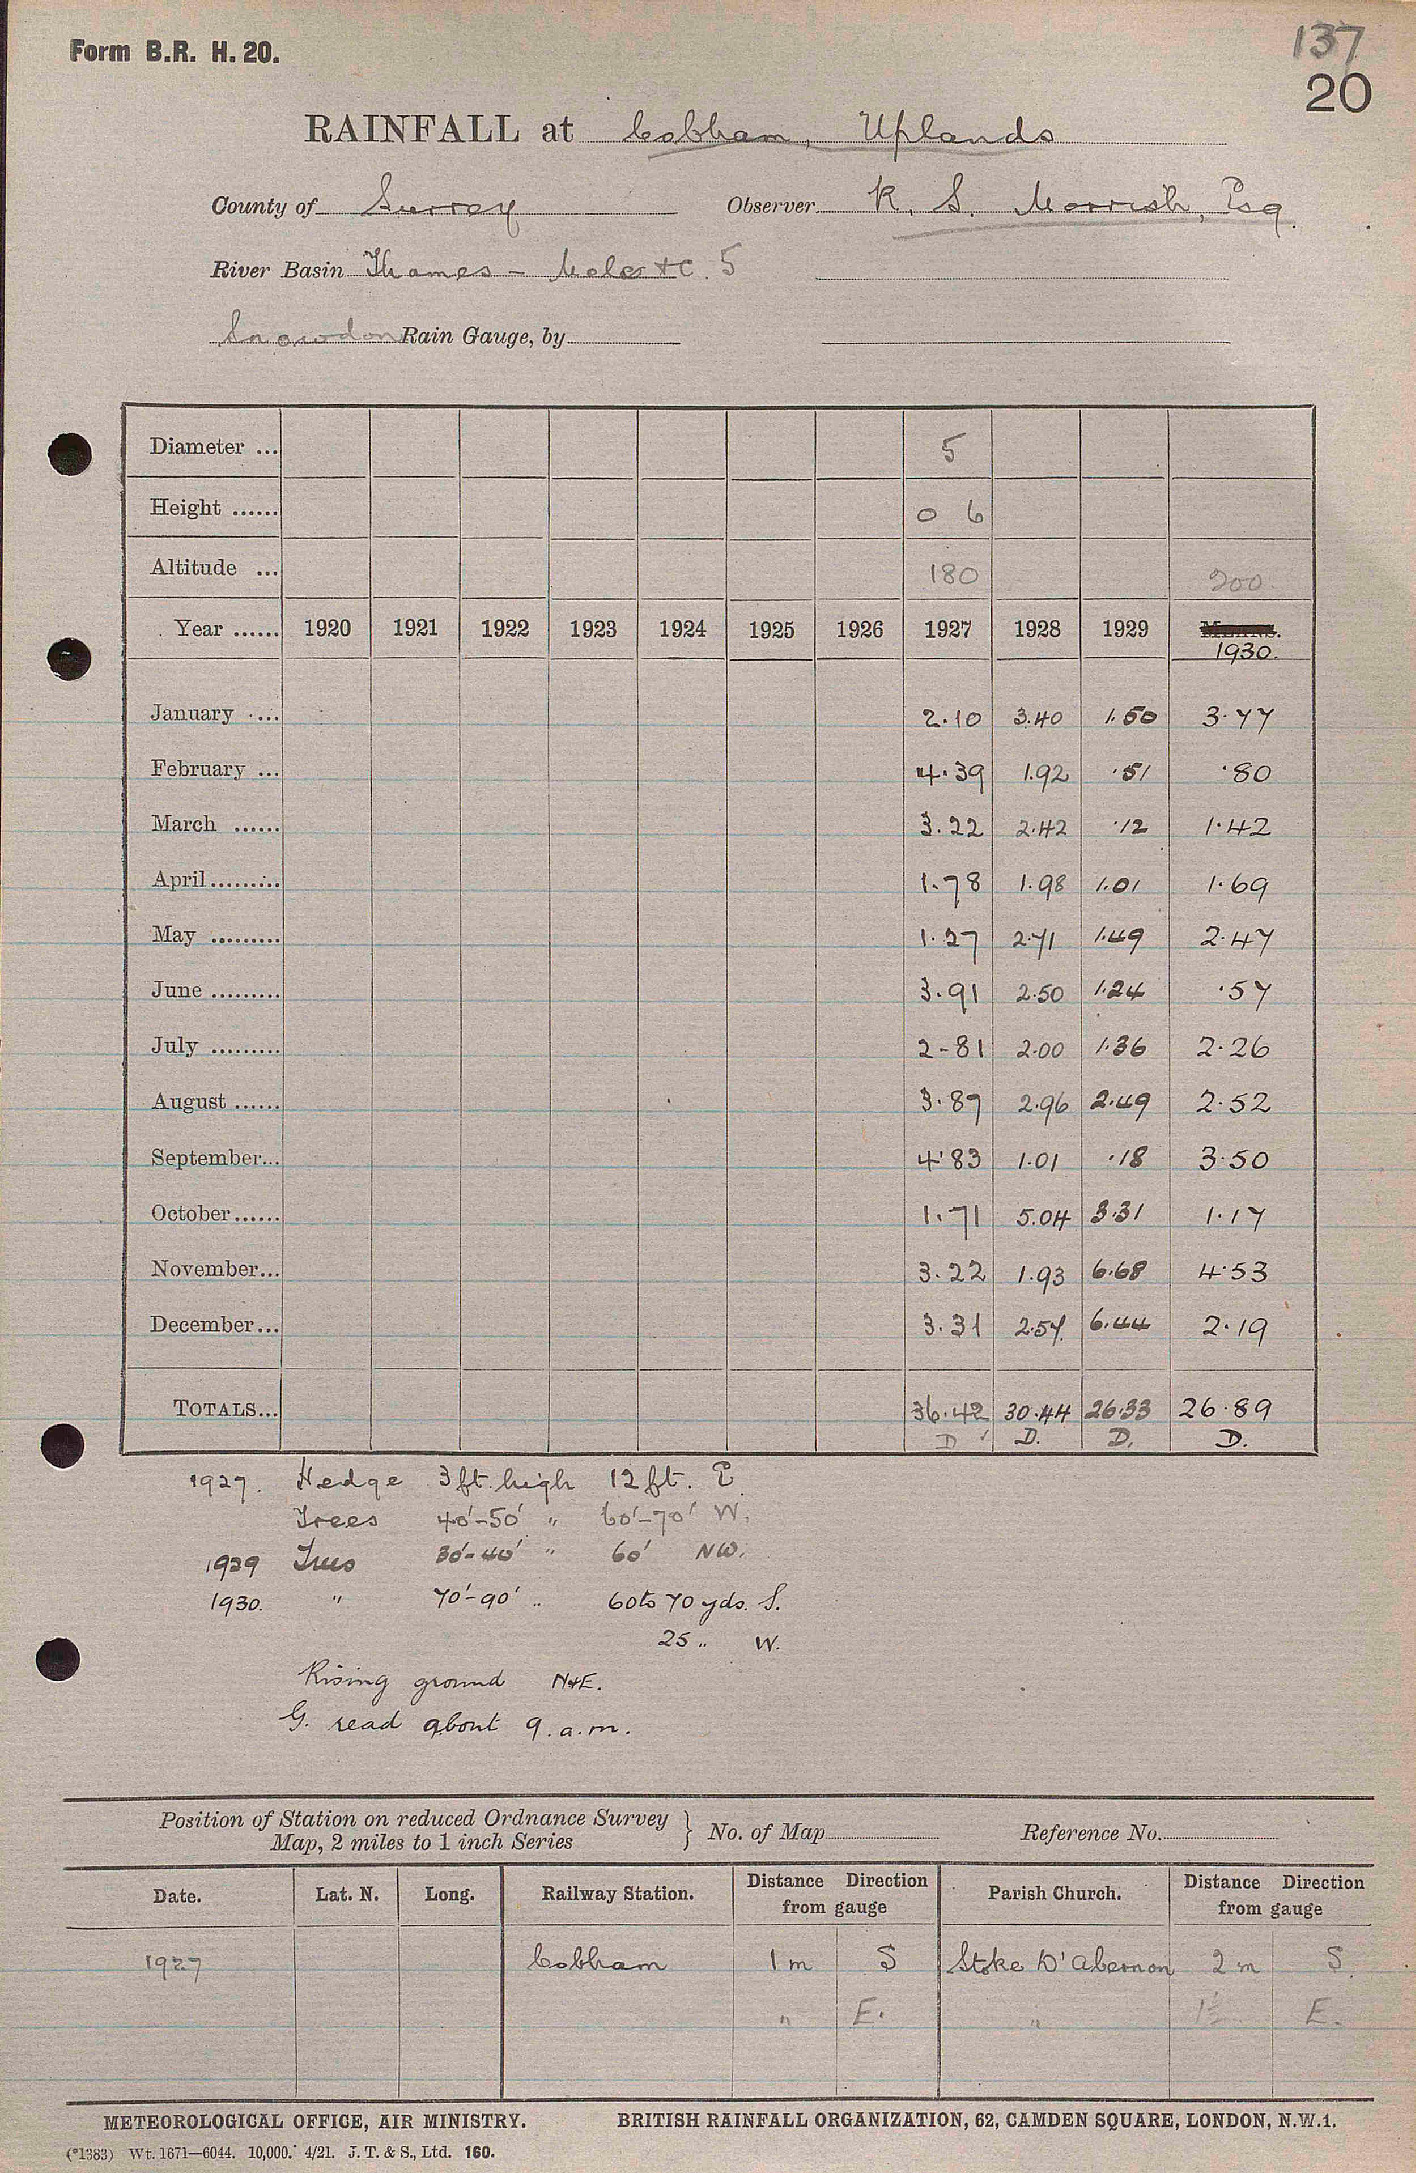 137
Form B.R. H. 20.
20
RAINFALL at Cobham, Uplands
County of Surrey Observer K. S. Morrish, Esq.
River Basin Thames - Mole &c. 5
Snowdon Rain Gauge, by
Diameter ... 5
Height ...... 0 6
Altitude ... 180 200
Year ...... 1920 1921 1922 1923 1924 1925 1926 1927 1928 1929 MEANS.
1930.
January .... 2.10 3.40 1.50 3.77
February ... 4.39 1.92 .51 .80
March ...... 3.22 2.42 .12 1.42
April......... 1.78 1.98 1.01 1.69
May ......... 1.27 2.71 1.49 2.47
June ......... 3.91 2.50 1.24 .57
July ......... 2-81 2.00 1.36 2.26
August ...... 3.87 2.96 2.49 2.52
September... 4.83 1.01 .18 3.50
October...... 1.71 5.04 3.31 1.17
November... 3.22 1.93 6.68 4.53
December... 3.31 2.57 6.44 2.19
TOTALS... 36.42 30.44 26.33 26.89
D ✓ D. D. D.
1927. Hedge 3 ft. high 12 ft. E.
Trees 40'-50' " 60'-70' W.
1929 Trees 30'-40' " 60' NW.
1930. " 70'-90' " 60 to 70 yds. S.
25 " W.
Rising ground N&E.
G. read about 9. a.m.
Position of Station on reduced Ordnance Survey
Map, 2 miles to 1 inch Series } No. of Map Reference No.
Date. Lat. N. Long. Railway Station. Distance Direction from gauge Parish Church. Distance Direction from gauge
1927 Cobham 1 m S Stoke D'Abernon 2 m S.
" E. " 1½ E.
METEOROLOGICAL OFFICE, AIR MINISTRY. BRITISH RAINFALL ORGANIZATION, 62, CAMDEN SQUARE, LONDON, N.W.1.
(*1383) Wt. 1671—6044. 10,000. 4/21. J. T. & S., Ltd. 160.